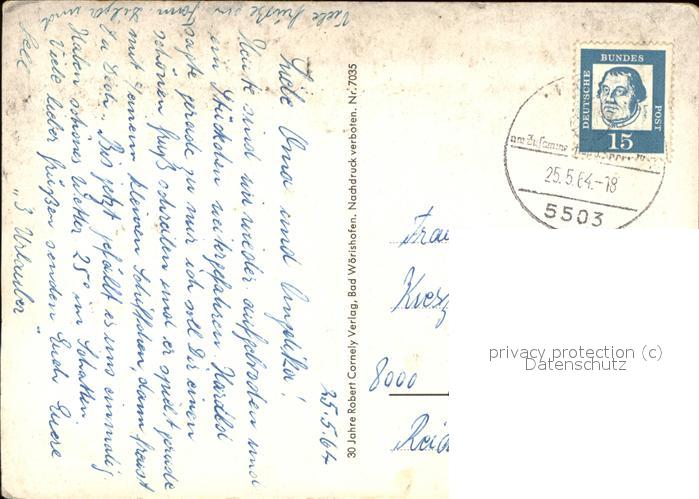 25.5.64
Liebe Oma und Angelika!
Heute sind wir wieder aufgebrochen und
ein Stückchen weitergefahren. Harald
sagte gerade zu mir ich soll Dir einen
schönen Gruß schreiben und er spielt gerade
mit seinem kleinen Schiffchen, dann freust
Du Dich. Bis jetzt gefällt es uns einmalig.
Haben schönes Wetter 25° im Schatten.
Viele liebe Grüßen senden Euch Eure
"3 Urlauber"
Viele Grüße an Fam. und
30 Jahre Robert Cornely Verlag, Bad Wörishofen. Nachdruck verboten. Nr. 7035
DEUTSCHE
BUNDES
POST
15
25.5.64.-18
5503
Frau
8000
privacy protection (c)
Datenschutz